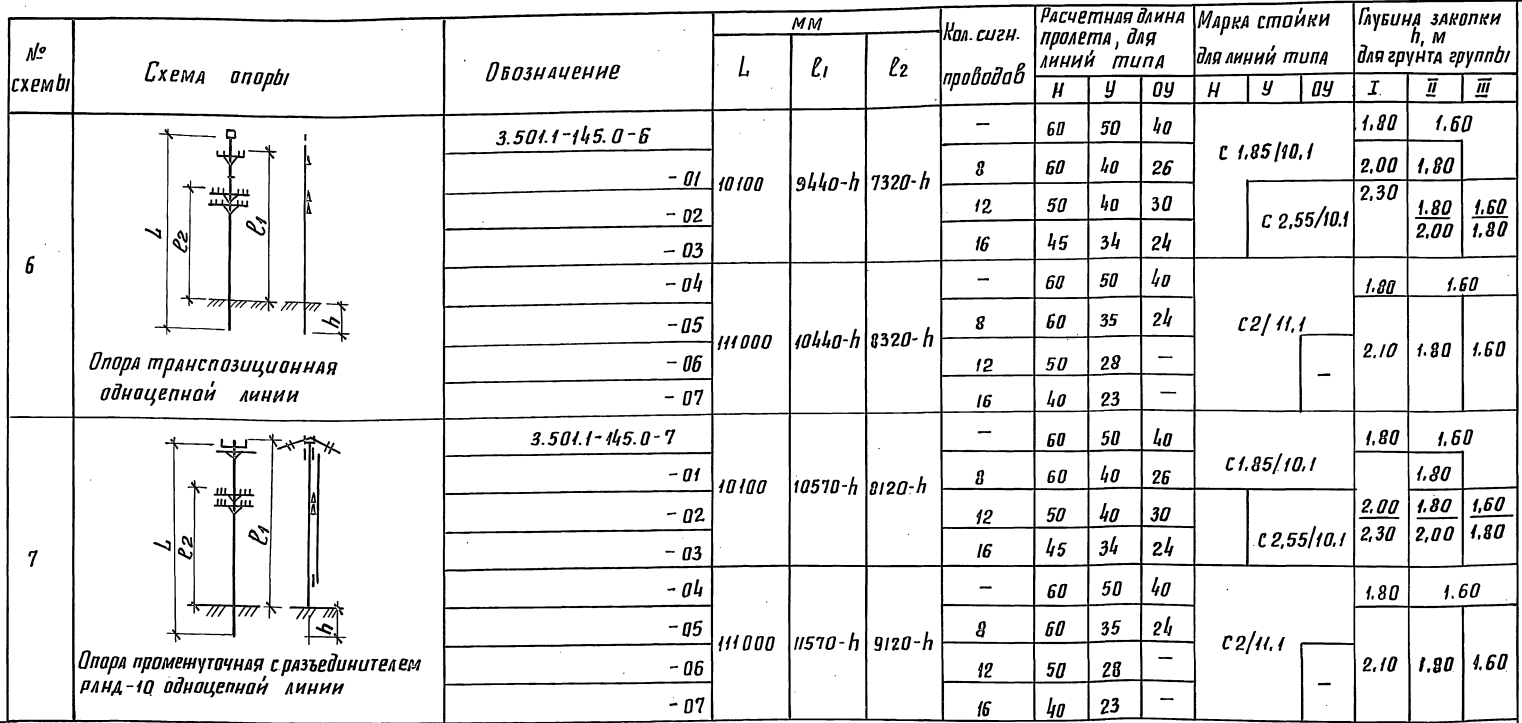 № схемы
Схема опоры
Обозначение
мм
L l1 l2
Кол. сигн. проводов
Расчетная длина пролета, для линий типа
Н У ОУ
Марка стойки для линий типа
Н У ОУ
Глубина закопки h, м для грунта группы
I. II III
6
L l2 l1 h
Опора транспозиционная
одноцепной линии
3.501.1-145.0-6
10100 9440-h 7320-h
- 60 50 40
С 1.85/10.1
1.80 1.60
- 01 8 60 40 26
2.00 1.80
- 02 12 50 40 30
С 2,55/10.1
2,30 1.80/2.00 1.60/1.80
- 03 16 45 34 24
- 04 - 60 50 40
111000 10440-h 8320-h
С2/11.1
1.80 1.60
- 05 8 60 35 24
2.10 1.80 1.60
- 06 12 50 28 -
-
- 07 16 40 23 -
7
L l2 l1 h
Опора промежуточная с разъединителем
РЛНД-10 одноцепной линии
3.501.1-145.0-7
10100 10570-h 8120-h
- 60 50 40
С1.85/10.1
1.80 1.60
- 01 8 60 40 26
1.80
- 02 12 50 40 30
С 2,55/10.1
2.00/2,30 1.80/2,00 1,60/1.80
- 03 16 45 34 24
- 04 - 60 50 40
111000 11570-h 9120-h
С2/11.1
1.80 1.60
- 05 8 60 35 24
2.10 1.80 1.60
- 06 12 50 28 -
-
- 07 16 40 23 -